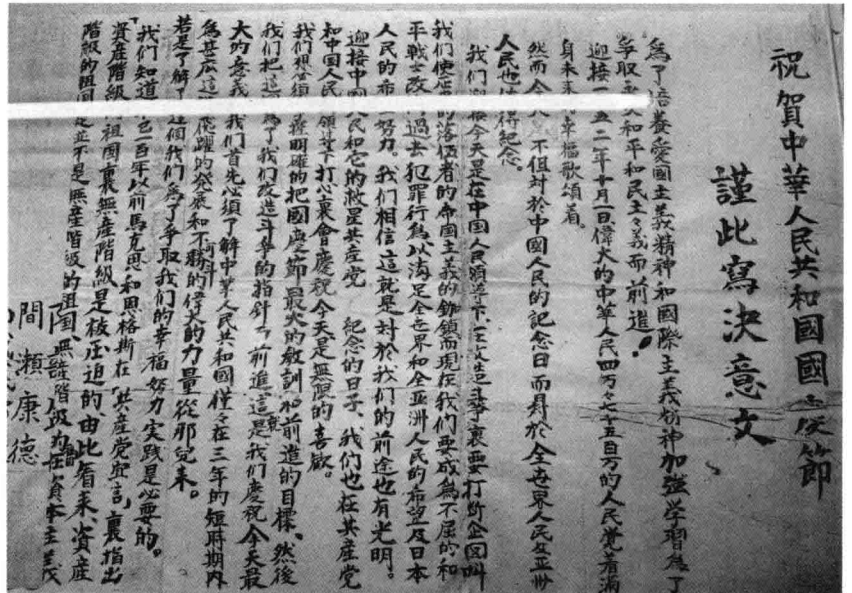 祝賀中華人民共和國國慶節
謹此寫決意文
為了培養愛國主義精神和國際主義精神加強学習為了
爭取永久和平和民主々義而前進！
迎接一九五二年十月一日偉大的中華人民四万々七千五百万的人民覚着滿
身未来的幸福歌頌着。
然而今 不但対於中國人民的記念日而対於全世界人民及亜州
人民也 得記念。
我们迎接今天是在中国人民領導下 改造斗争裏要打断企図叫
我们使 的落伍者的帝國主義的鉄鎖而現在我们要成為不屈的和
平戦士改 過去犯罪行為以満足全世界和全亜洲人民的希望及日本
人民的希 努力。我们相信這就是対於我们的前途也有光明。
迎接中國人民和它的救星共産党 紀念的日子、我们也在共産党
和中国人民 領導下打心裏會慶祝今天是無限的喜歓。
我们想必須 明確的把國慶節最大的教訓和前進的目標、然後
我们把這 為了我们改造斗争的指針 前進、這是我们慶祝今天最
大的意義 我们首先必須了解中華人民共和國僅々在三年的短时期内
為甚広這 飛躍的発展和不勝的偉大的力量從那兒来。
若是了解了這個我们為了争取我们的幸福努力実践是必要的。
我们知道 一百年以前馬克思和恩格斯在「共産党宣言」裏指出
「資産階級 祖国裏無産階級是被圧迫的、由此看来、資産
階級的祖国 並不是無産階級的祖国、無産階級為在資本主義
間瀬康徳